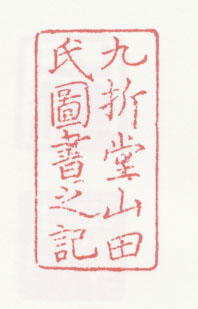 九折堂山田
氏圖書之記